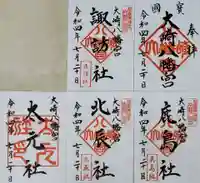 奉拝
國寶
大崎八幡宮
令和四年七月二十日
大崎八幡宮
諏訪社
令和四年七月二十日
大崎八幡宮
鹿島社
令和四年七月二十日
大崎八幡宮
北辰社
令和四年七月二十日
大崎八幡宮
太元社
令和四年七月二十日